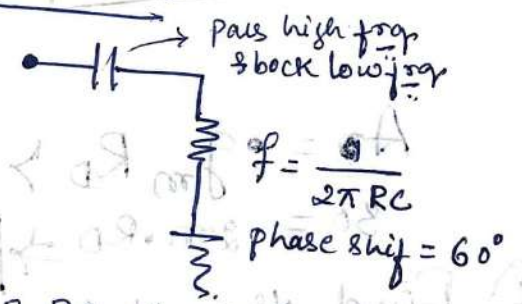 pass high frq
& bock low frq
f = 1
2π RC
phase shif = 60°